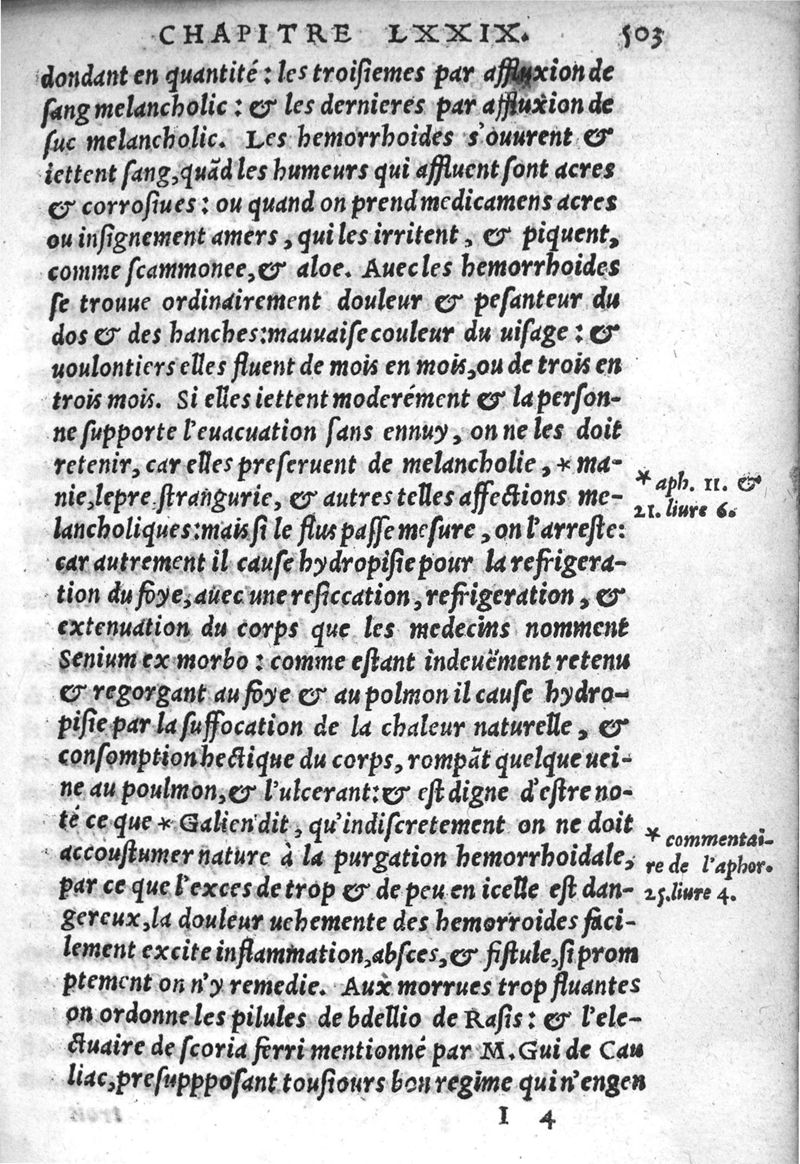 CHAPITRE LXXIX. 503
dondant en quantité : les troiſiemes par affluxion de
ſang melancholic : & les dernieres par affluxion de
ſuc melancholic. Les hemorrhoides s'ouurent &
iettent ſang, quãd les humeurs qui affluent ſont acres
& corroſiues : ou quand on prend medicamens acres
ou inſignement amers, qui les irritent, & piquent,
comme ſcammonee, & aloe. Auec les hemorrhoides
ſe trouue ordinairement douleur & peſanteur du
dos & des hanches : mauuaiſe couleur du uiſage : &
uoulontiers elles fluent de mois en mois, ou de trois en
trois mois. Si elles iettent moderément & la perſon-
ne ſupporte l'euacuation ſans ennuy, on ne les doit
retenir, car elles preſeruent de melancholie, * ma-
nie, lepre ſtrangurie, & autres telles affections me-
lancholiques : mais ſi le flus paſſe meſure, on l'arreſte :
car autrement il cauſe hydropiſie pour la refrigera-
tion du foye, auec une reſiccation, refrigeration, &
extenuation du corps que les medecins nomment
Senium ex morbo : comme eſtant indeuëment retenu
& regorgant au foye & au polmon il cauſe hydro-
piſie par la ſuffocation de la chaleur naturelle, &
conſomption hectique du corps, rompãt quelque uei-
ne au poulmon, & l'ulcerant : & eſt digne d'eſtre no-
té ce que * Galien dit, qu'indiſcretement on ne doit
accouſtumer nature à la purgation hemorrhoidale,
par ce que l'exces de trop & de peu en icelle eſt dan-
gereux, la douleur uehemente des hemorroides faci-
lement excite inflammation, abſces, & fiſtule, ſi prom
ptement on n'y remedie. Aux morrues trop fluantes
on ordonne les pilules de bdellio de Raſis : & l'ele-
ctuaire de ſcoria ferri mentionné par M. Gui de Cau
liac, preſupppoſant touſiours bon regime qui n'engen
I 4
* aph. 11. &
21. liure 6.
* commentai-
re de l'aphor.
25. liure 4.